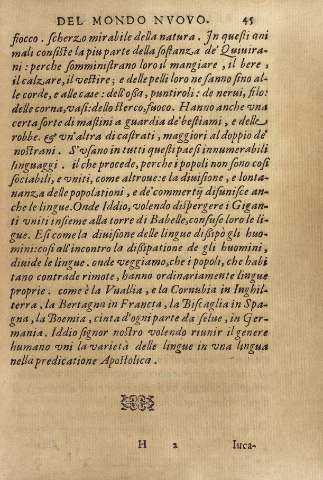 DEL MONDO NVOVO. 45
fiocco. scherzo mirabile della natura. In questi ani
mali consiste la piu parte della sostanza de' Quiuira
ni: perche somministrano loro il mangiare, il bere,
il calzare, il vestire; e delle pelli loro ne fanno sino al-
le corde, e alle case: dell'ossa, puntiroli: de nerui, filo:
delle corna, vasi: dello sterco, fuoco. Hanno anche vna
certa sorte di mastini a guardia de' bestiami, e delle
robbe. & vn'altra di castrati, maggiori al doppio de'
nostrani. S'vsano in tutti questi paesi innumerabili
linguaggi. il che procede, perche i popoli non sono cosi
sociabili, e vniti, come altroue: e la diuisione, e lonta-
nanza delle popolationi, e de' commertij disunisce an-
che le lingue. Onde Iddio, volendo dispergere i Gigan-
ti vniti insieme alla torre di Babelle, confuse loro le lin
gue. Esi come la diuisione delle lingue dissipò gli huo-
mini: cosi all'incontro la dissipatione de gli huomini,
diuide le lingue. onde veggiamo, che i popoli, che habi
tano contrade rimote, hannno ordinariamente lingue
proprie. come è la Vuallia, e la Cornubia in Inghil-
terra, la Bertagna in Francia, la Biscaglia in Spa-
gna, la Boemia, cinta d'ogni parte da selue, in Ger-
mania. Iddio signor nostro volendo riunir il genere
humano vnì la varietà delle lingue in vna lingua
nella predicatione Apostolica.
H 2 Iuca-